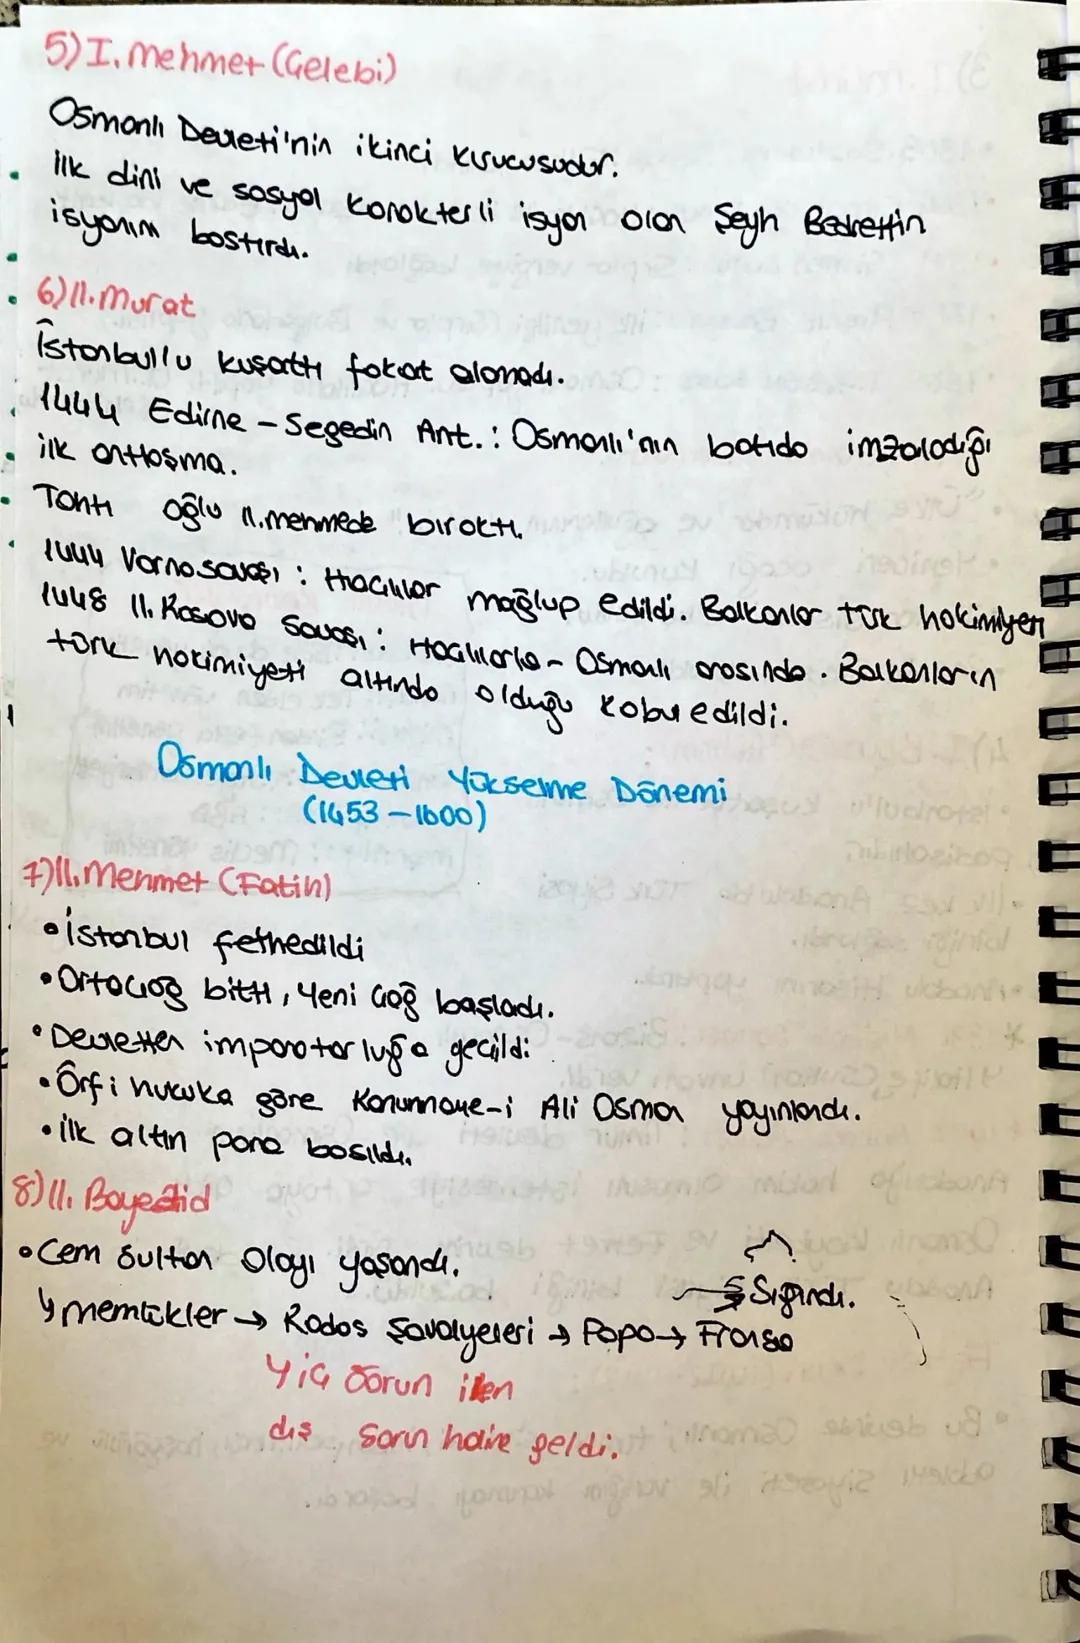 5) I. Mehmet (Çelebi)
Osmanlı Devleti'nin ikinci kurucusudur.
İlk dini ve sosyal karakterli isyan olan Şeyh Bedrettin
isyanını bastırdı.
6) II. Murat
İstanbul'u kuşattı fakat alamadı.
1444 Edirne - Segedin Ant. : Osmanlı'nın batıda imzaladığı
ilk antlaşma.
Tahtı oğlu II. mehmede bıraktı.
1444 Varna savaşı : Haçlılar mağlup edildi. Balkanlar türk hakimiyeti
1448 II. Kosova Savaşı : Haçlılarla - Osmanlı arasında. Balkanların
türk hakimiyeti altında olduğu kabul edildi.
Osmanlı Devleti Yükselme Dönemi
(1453 - 1600)
7) II. Mehmet (Fatih)
• İstanbul fethedildi
• Ortaçağ bitti, Yeni Çağ başladı.
• Devletten imparatorluğa geçildi
• Örfi hukuka göre Kanunname-i Ali Osman yayınlandı.
• İlk altın para basıldı.
8) II. Bayezid
• Cem Sultan Olayı yaşandı.
Sığındı.
↳ memlükler → Rodos Şavalyeleri → Papa → Fransa
↳ iç sorun iken
dış sorun haline geldi.